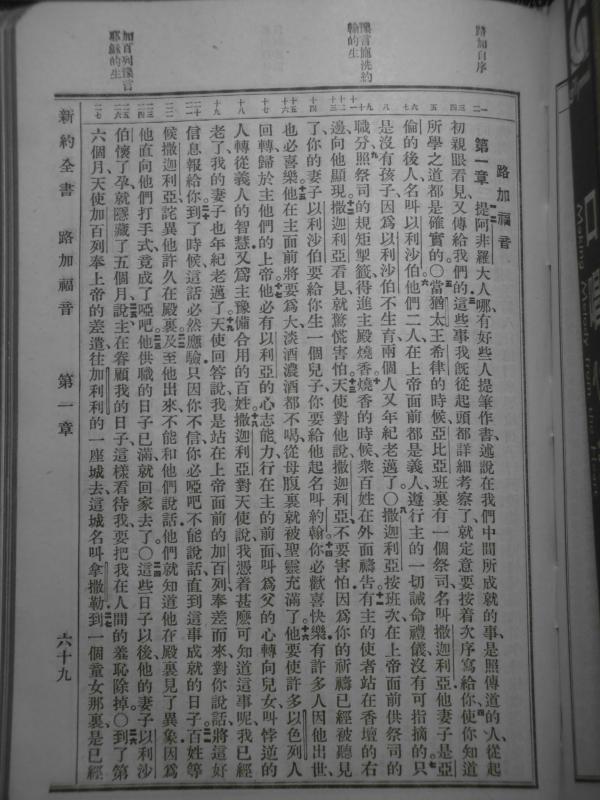 路加自序
豫言施洗約
翰的生
加百列豫言
耶穌的生
路加福音
第一章 提阿非羅大人哪有好些人提筆作書述說在我們中間所成就的事是照傳道的人從起
初親眼看見又傳給我們的這些事我旣從起頭都詳細考察了就定意要按着次序寫給你使你知道
所學之道都是確實的〇當猶太王希律的時候亞比亞班裏有一個祭司名叫撒迦利亞他妻子是亞
倫的後人名叫以利沙伯他們二人在上帝面前都是義人遵行主的一切誡命禮儀沒有可指摘的只
是沒有孩子因爲以利沙伯不生育兩個人又年紀老邁了〇撒迦利亞按班次在上帝面前供祭司的
職分照祭司的規矩掣籤得進主殿燒香燒香的時候衆百姓在外面禱告有主的使者站在香壇的右
邊向他顯現撒迦利亞看見就驚慌害怕天使對他說撒迦利亞不要害怕因爲你的祈禱已經被聽見
了你的妻子以利沙伯要給你生一個兒子你要給他起名叫約翰你必歡喜快樂有許多人因他出世
也必喜樂他在主面前將要爲大淡酒濃酒都不喝從母腹裏就被聖靈充滿了他要使許多以色列人
回轉歸於主他們的上帝他必有以利亞的心志能力行在主的前面叫爲父的心轉向兒女叫悖逆的
人轉從義人的智慧又爲主豫備合用的百姓撒迦利亞對天使說我憑着甚麽可知道這事呢我已經
老了我的妻子也年紀老邁了天使回答說我是站在上帝面前的加百列奉差而來對你說話將這好
信息報給你到了時候這話必然應驗只因你不信你必啞吧不能說話直到這事成就的日子百姓等
候撒迦利亞詫異他許久在殿裏及至他出來不能和他們說話他們就知道他在殿裏見了異象因爲
他直向他們打手式竟成了啞吧他供職的日子已滿就回家去了〇這些日子以後他的妻子以利沙
伯懷了孕就隱藏了五個月說主在眷顧我的日子這樣看待我要把我在人間的羞恥除掉〇到了第
六個月天使加百列奉上帝的差遣往加利利的一座城去這城名叫拿撒勒到一個童女那裏是已經
新約全書 路加福音 第一章 六十九
Making Melody from the Heart